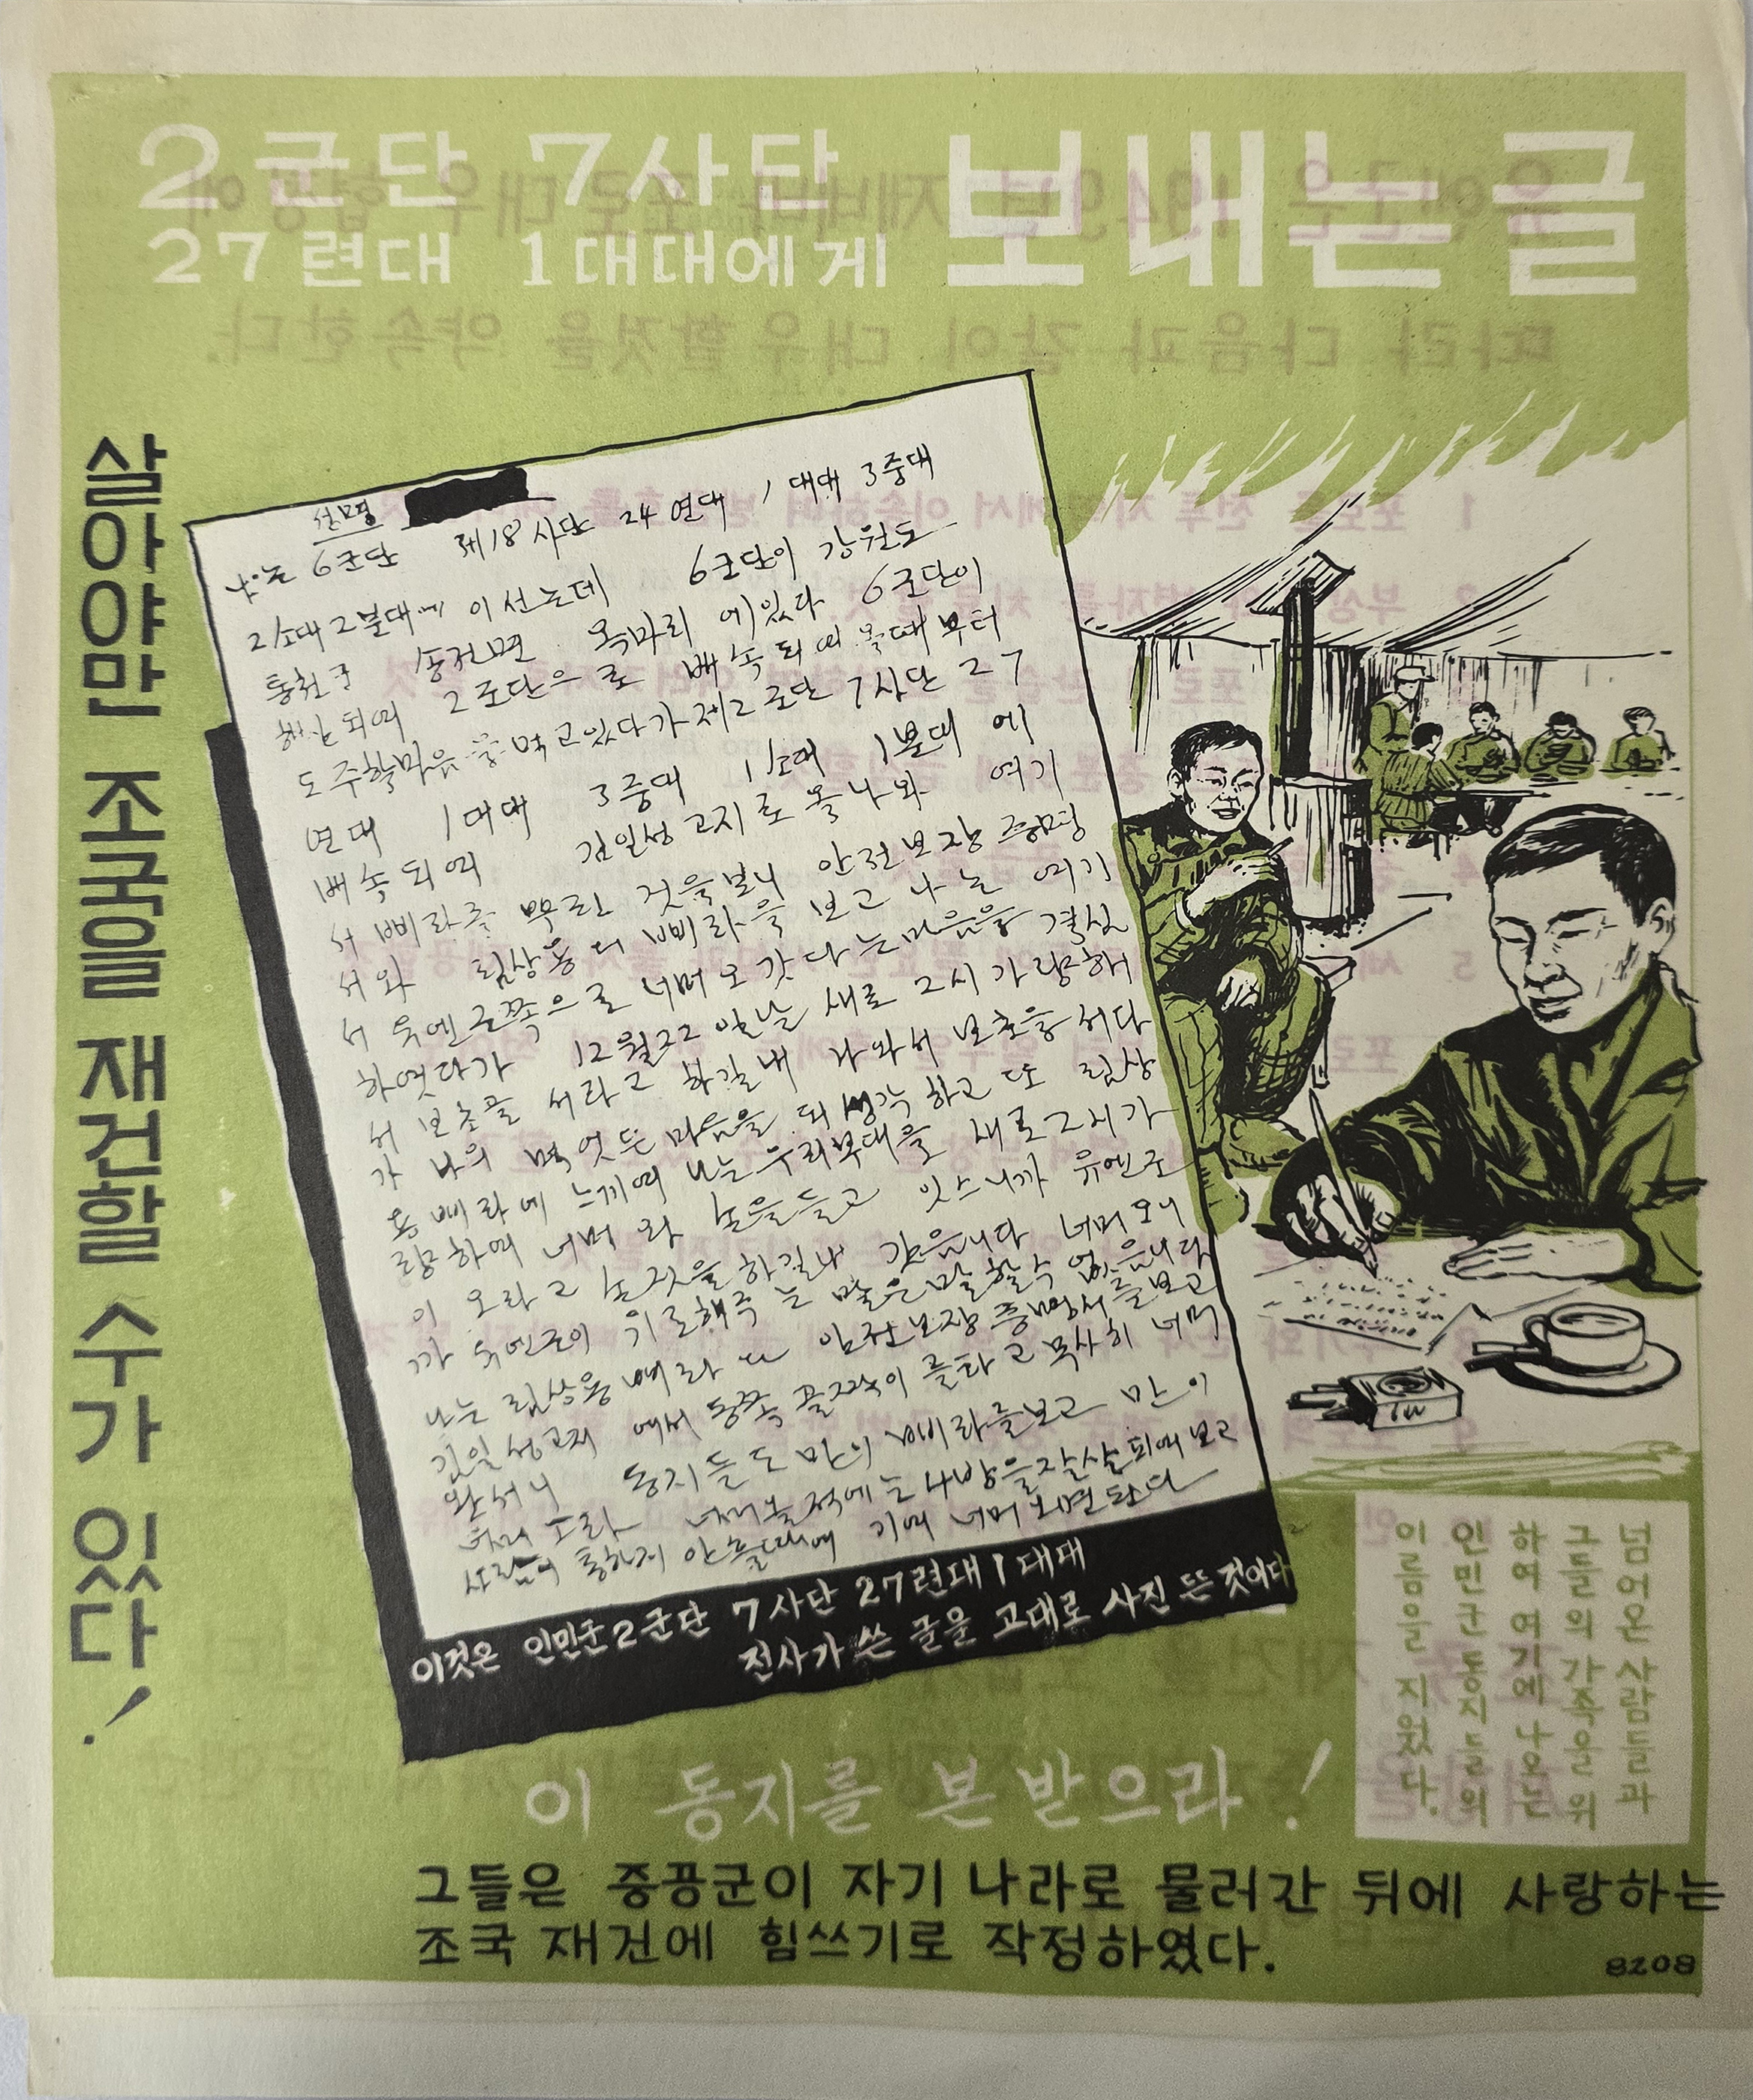 2군단 7사단
27련대 1대대에게
보내는 글
살아야만 조국을 재건할 수가 있다!
선명
나는 6군단 제18사단 24연대 1대대 3중대
2소대 2분대에 이섰는데 6군단이 강원도
통천군 송전면 에있다 6군단이
해산되여 2군단으로 배속되여 올때부터
도주할마음을 먹고있다가 제2군단 7사단 27
연대 1대대 3중대 1소대 1분대에
배속되여 김일성고지로 올나와 여기
서 삐라를 뿌린 것을보니 안전보장증명
서와 림상용의 삐라을 보고 나는 여기
서 유엔군쪽으로 너머오갓다는마음을 결심
하엿다가 12월22일날 새로 2시가량해
서 보초를 서라고 하길내 나와서 보초을서다
가 나의 먹엇든마음을 되생각하고 또 림상
용삐라에 느끼여 나는우리부대을 새로2시가
량하여 너머와 손을들고 잇스니까 유엔군
이 오라고 손짓을하길내 갔읍니다 너머오니
까 유엔군이 위로해주는 말은말할수 없읍니다
나는 림상용삐라 안전보장증명서를보고
김일성고지에서 동쪽골짝이를타고 무사히 너머
왔서니 동지들도 만이 삐라를보고 만이
너머오라 너머올적에는 사방을잘살피여보고
사람이 통하지 안을때에 기여너머오면된다
이것은 인민군2군단 7사단 27련대 1대대
전사가 쓴 글을 고대로 사진 뜬 것이다
넘어온 사람들과
그들의 가족을 위
하여 여기에 나오는
인민군 동지들의
이름을 지웠다.
이 동지를 본받으라!
그들은 중공군이 자기 나라로 물러간 뒤에 사랑하는
조국 재건에 힘쓰기로 작정하였다.
8208